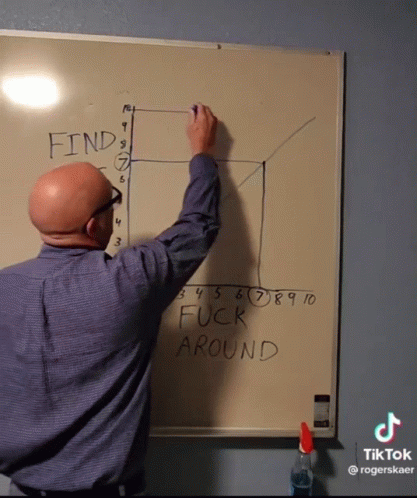 10
9
FIND
8
7
6
4
3
3 4 5 6 7 8 9 10
FUCK
AROUND
TikTok
@rogerskaer